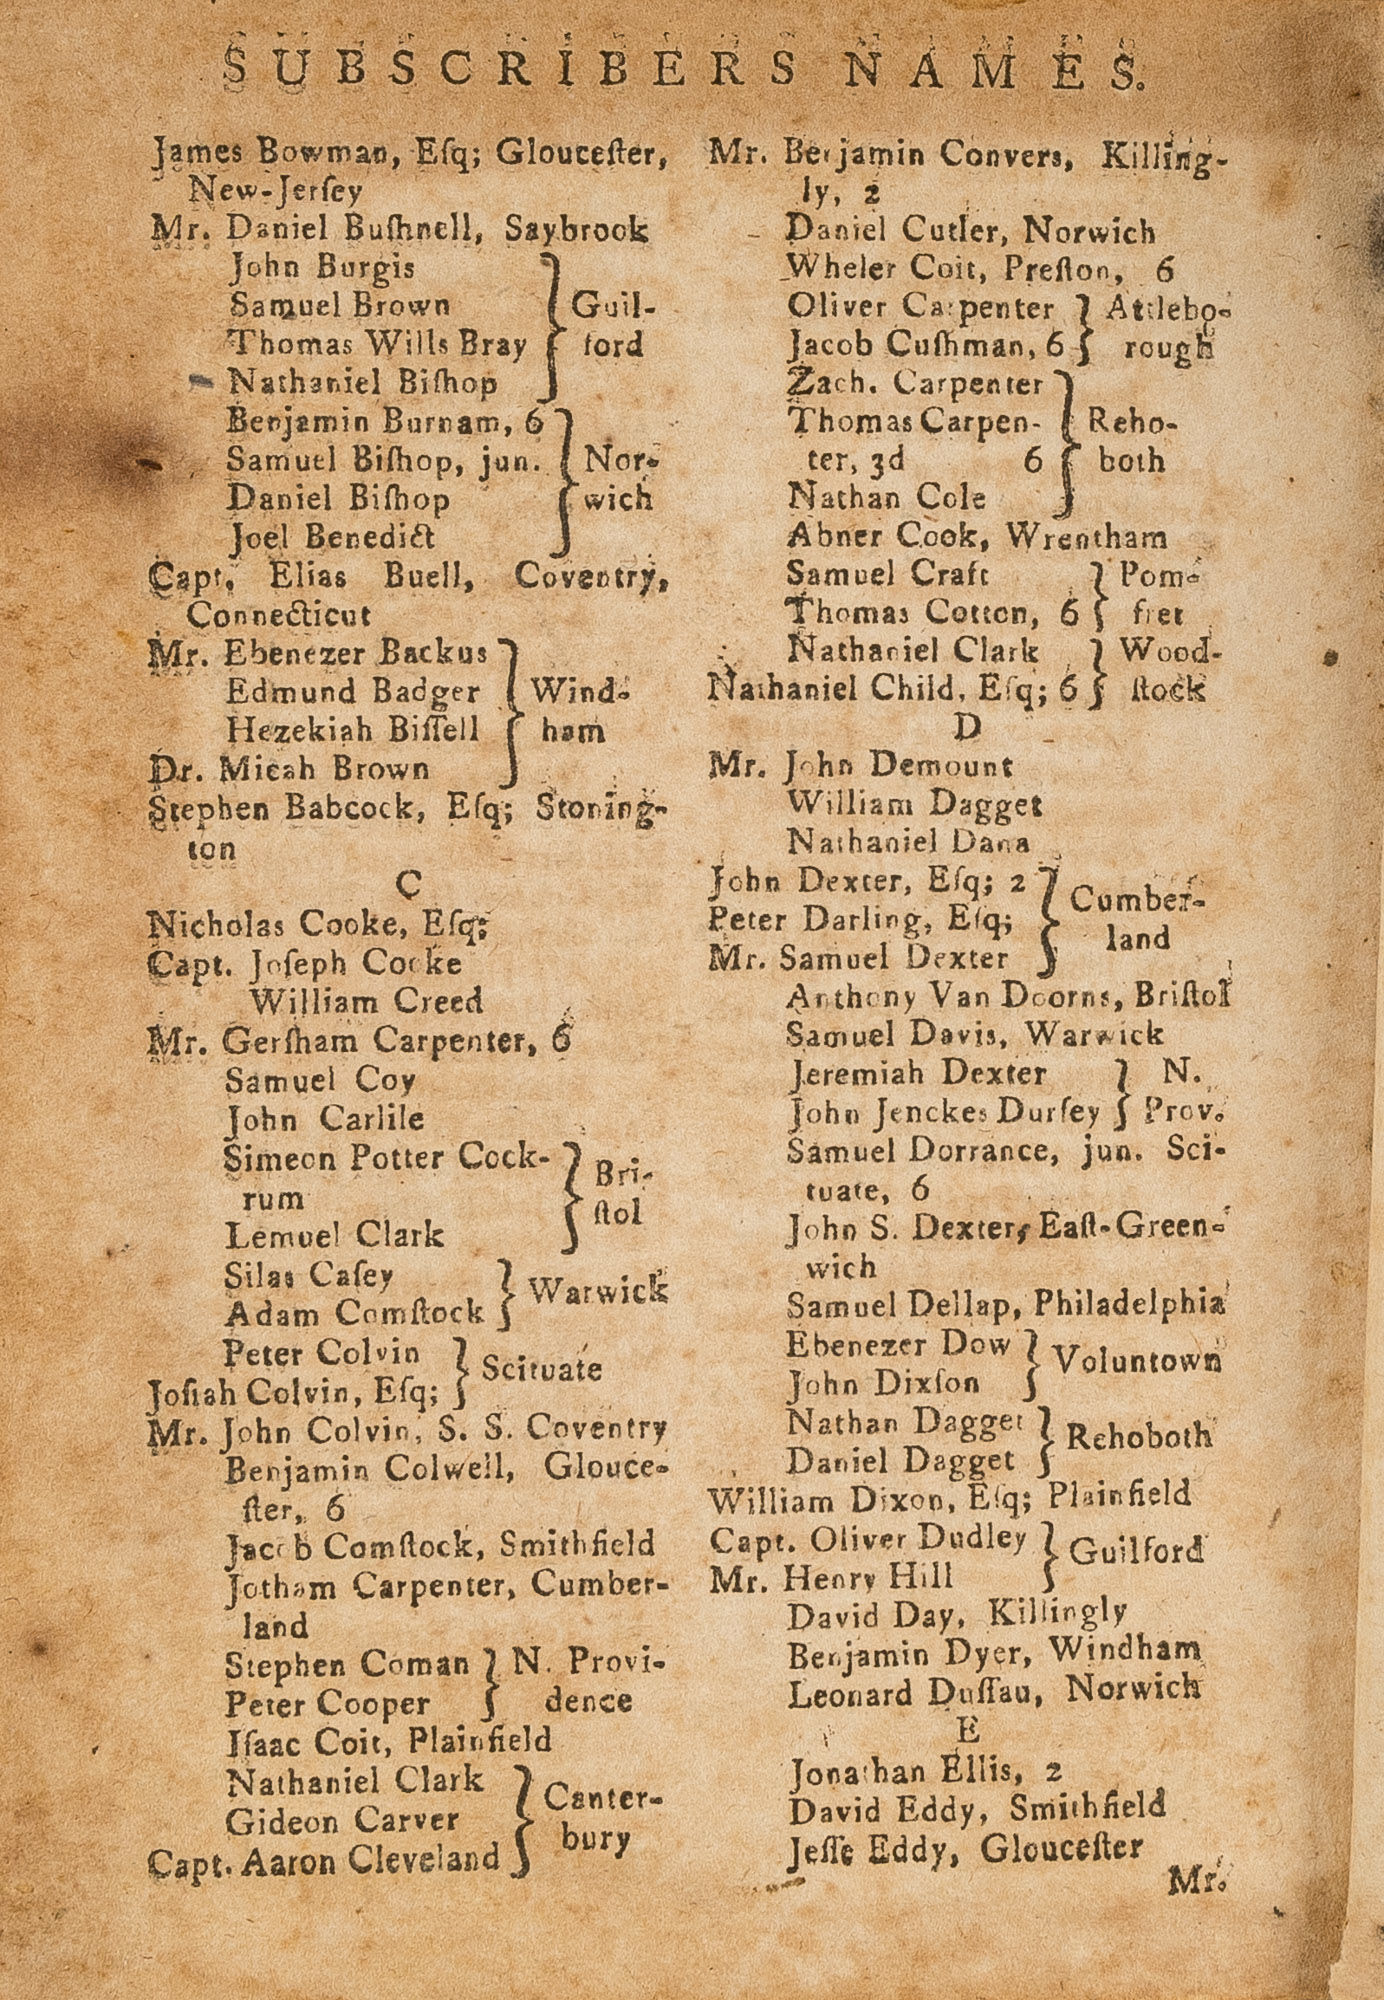 SUBSCRIBERS NAMES.
James Bowman, Eſq; Glouceſter,
New-Jerſey
Mr. Daniel Buſhnell, Saybrook
John Burgis
Samuel Brown } Guil-
Thomas Wills Bray } ford
Nathaniel Biſhop
Benjamin Burnam, 6
Samuel Biſhop, jun. } Nor-
Daniel Biſhop } wich
Joel Benedict
Capt. Elias Buell, Coventry,
Connecticut
Mr. Ebenezer Backus
Edmund Badger } Wind-
Hezekiah Biſſell } ham
Dr. Micah Brown
Stephen Babcock, Eſq; Stoning-
ton
C
Nicholas Cooke, Eſq;
Capt. Joſeph Cooke
William Creed
Mr. Gerſham Carpenter, 6
Samuel Coy
John Carlile
Simeon Potter Cock- } Bri-
rum
Lemuel Clark } ſtol
Silas Caſey } Warwick
Adam Comſtock
Peter Colvin } Scituate
Joſiah Colvin, Eſq;
Mr. John Colvin, S. S. Coventry
Benjamin Colwell, Glouce-
ſter, 6
Jacob Comſtock, Smithfield
Jotham Carpenter, Cumber-
land
Stephen Coman } N. Provi-
Peter Cooper } dence
Iſaac Coit, Plainfield
Nathaniel Clark } Canter-
Gideon Carver } bury
Capt. Aaron Cleveland
Mr. Benjamin Convers, Killing-
ly, 2
Daniel Cutler, Norwich
Wheler Coit, Preſton, 6
Oliver Carpenter } Attlebo-
Jacob Cuſhman, 6 } rough
Zach. Carpenter
Thomas Carpen- } Reho-
ter, 3d 6 } both
Nathan Cole
Abner Cook, Wrentham
Samuel Craft } Pom-
Thomas Cotton, 6 } fret
Nathaniel Clark } Wood-
Nathaniel Child, Eſq; 6 } ſtock
D
Mr. John Demount
William Dagget
Nathaniel Dana
John Dexter, Eſq; 2 } Cumber-
Peter Darling, Eſq; } land
Mr. Samuel Dexter
Anthony Van Doorns, Briſtol
Samuel Davis, Warwick
Jeremiah Dexter } N.
John Jenckes Durſey } Prov.
Samuel Dorrance, jun. Sci-
tuate, 6
John S. Dexter, Eaſt-Green-
wich
Samuel Dellap, Philadelphia
Ebenezer Dow } Voluntown
John Dixſon
Nathan Dagget } Rehoboth
Daniel Dagget
William Dixon, Eſq; Plainfield
Capt. Oliver Dudley } Guilford
Mr. Henry Hill
David Day, Killingly
Benjamin Dyer, Windham
Leonard Duſſau, Norwich
E
Jonathan Ellis, 2
David Eddy, Smithfield
Jeſſe Eddy, Glouceſter
Mr.